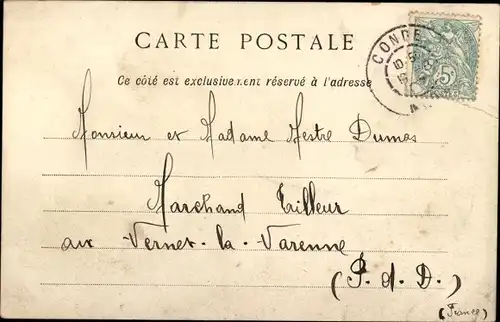 CARTE POSTALE
Ce côté est exclusivement réservé à l'adresse
CONDE
5
Monsieur et Madame Mestre Dumas
Marchand Tailleur
au Vernet-la-Varenne
(P. d. D.)
(France)